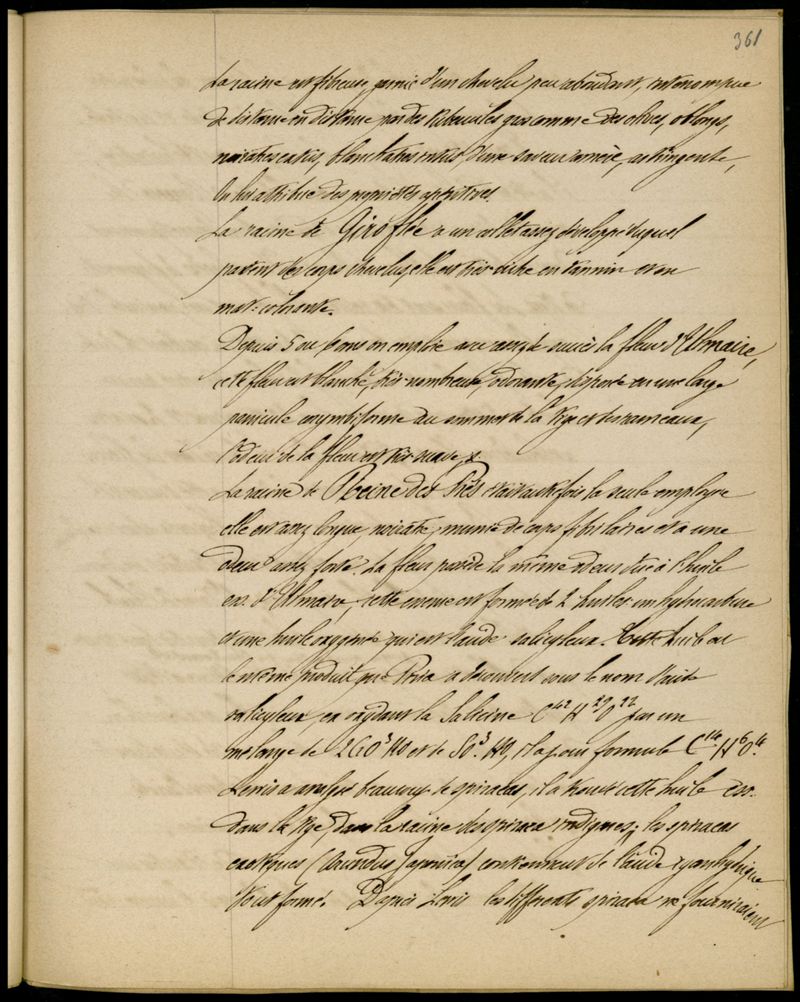 361
La racine est fibreuse garnie d'un chevelu peu abondant, interrompue
de distance en distance par des tubercules gros comme des olives, oblongs,
noirâtres extér., blanchâtres intér., d'une saveur amère, astringente,
On lui attribue des propriétés apéritives
La racine de Giroflée a un collet assez développé duquel
partent des corps chevelus, elle est très riche en tannin et en
mat. colorante.
Depuis 5 ou 6 ans on emploie avec assez de succès la fleur d'Ulmaire,
cette fleur est blanche, très nombreuse, odorante, disposée en une large
panicule corymbiforme au sommet de la tige et des rameaux,
l'odeur de la fleur est très suave
La racine de Reine des Prés était autrefois la seule employée
elle est assez longue, noirâtre, munie de corps fibrillaires et a une
odeur assez forte. La fleur possède la même odeur due à l'huile
ess. d'Ulmaire, cette essence est formée de 2 huiles un hydrocarbure
et une huile oxygénée qui est l'acide salicyleux. Cette huile est
le même produit que Piria a découvert sous le nom d'acide
salicyleux, en oxydant la Salicine C42 H29 O22 par un
mélange de 2 CrO3 KO et de SO3 HO, il a pour formule C14 H6 O4.
Lewis a analysé beaucoup de spiraeas, il a trouvé cette huile ess.
dans la tige, dans la racine des spiraea indigènes; les spiraeas
exotiques (Aruncus Japonica) contiennent de l'acide cyanhydrique
tout formé. D'après Lewis les différents spiraea ne fourniraient